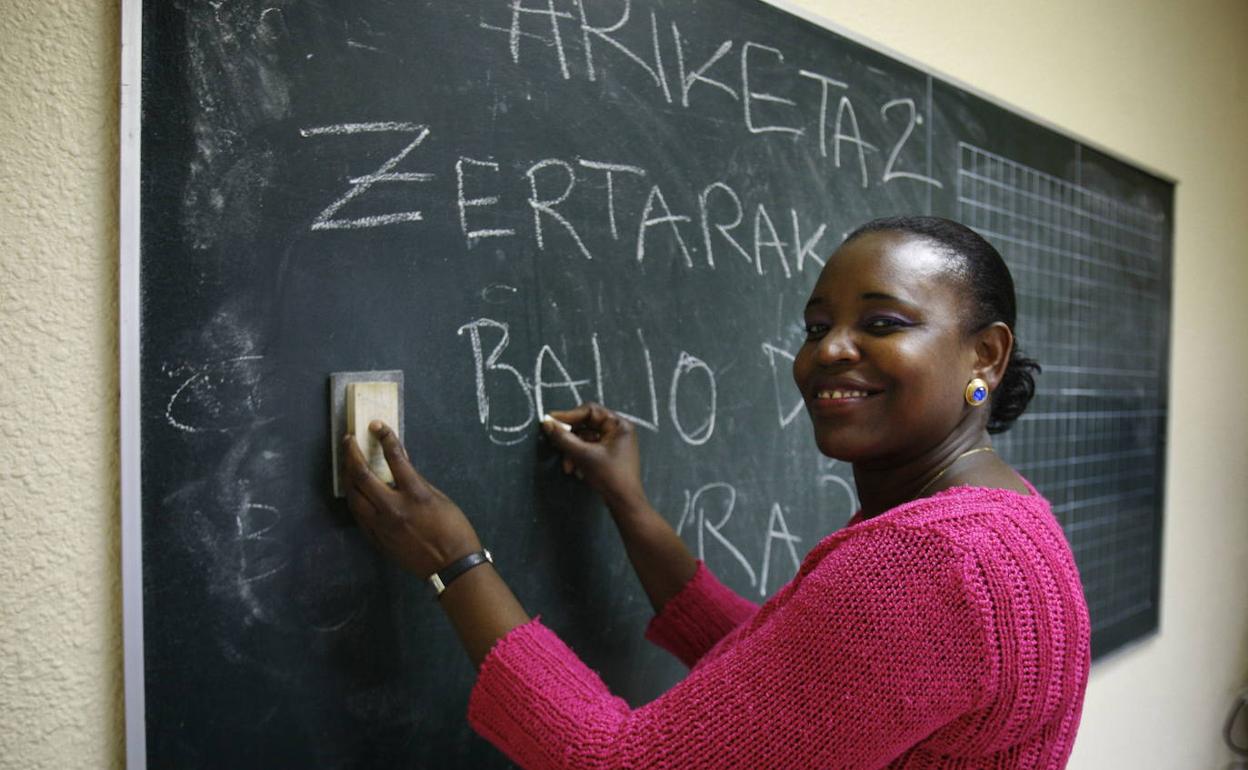 ARIKETA 2
ZERTARAK
BALIO D
RA?